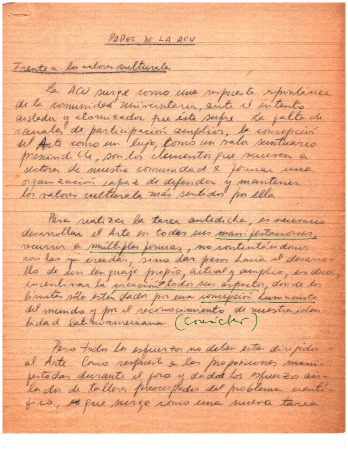 PAPEL DE LA ACU
Frente a los valores culturales
La ACU surge como una respuesta espontánea
de la comunidad universitaria, ante el intento
aislador y atomizador que éste sufre. La falta de
canales de participación amplios, la concepción
del Arte como un lujo, como un valor suntuario
prescindible, son los elementos que mueven a
sectores de nuestra comunidad a formar una
organización capaz de defender y mantener
los valores culturales más sentidos por ella.
Para realizar la tarea antedicha, es necesario
desarrollar el Arte en todas sus manifestaciones,
recurrir a múltiples formas, no contentándonos
con las ya creadas, sino dar paso hacia el desarro-
llo de un lenguaje propio, actual y amplio, es decir,
incentivar la creación todos sus aspectos, donde los
límites sólo estén dados por una concepción humanista
del mundo y por el reconocimiento de nuestra iden-
tidad latinoamericana.
Pero todos los esfuerzos no deben estar dirigidos
al Arte. Como respuesta a las proposiciones mani-
festadas durante el foro y dados los esfuerzos ais-
lados de talleres preocupados del problema cientí-
fico, es que surge como una nueva tarea